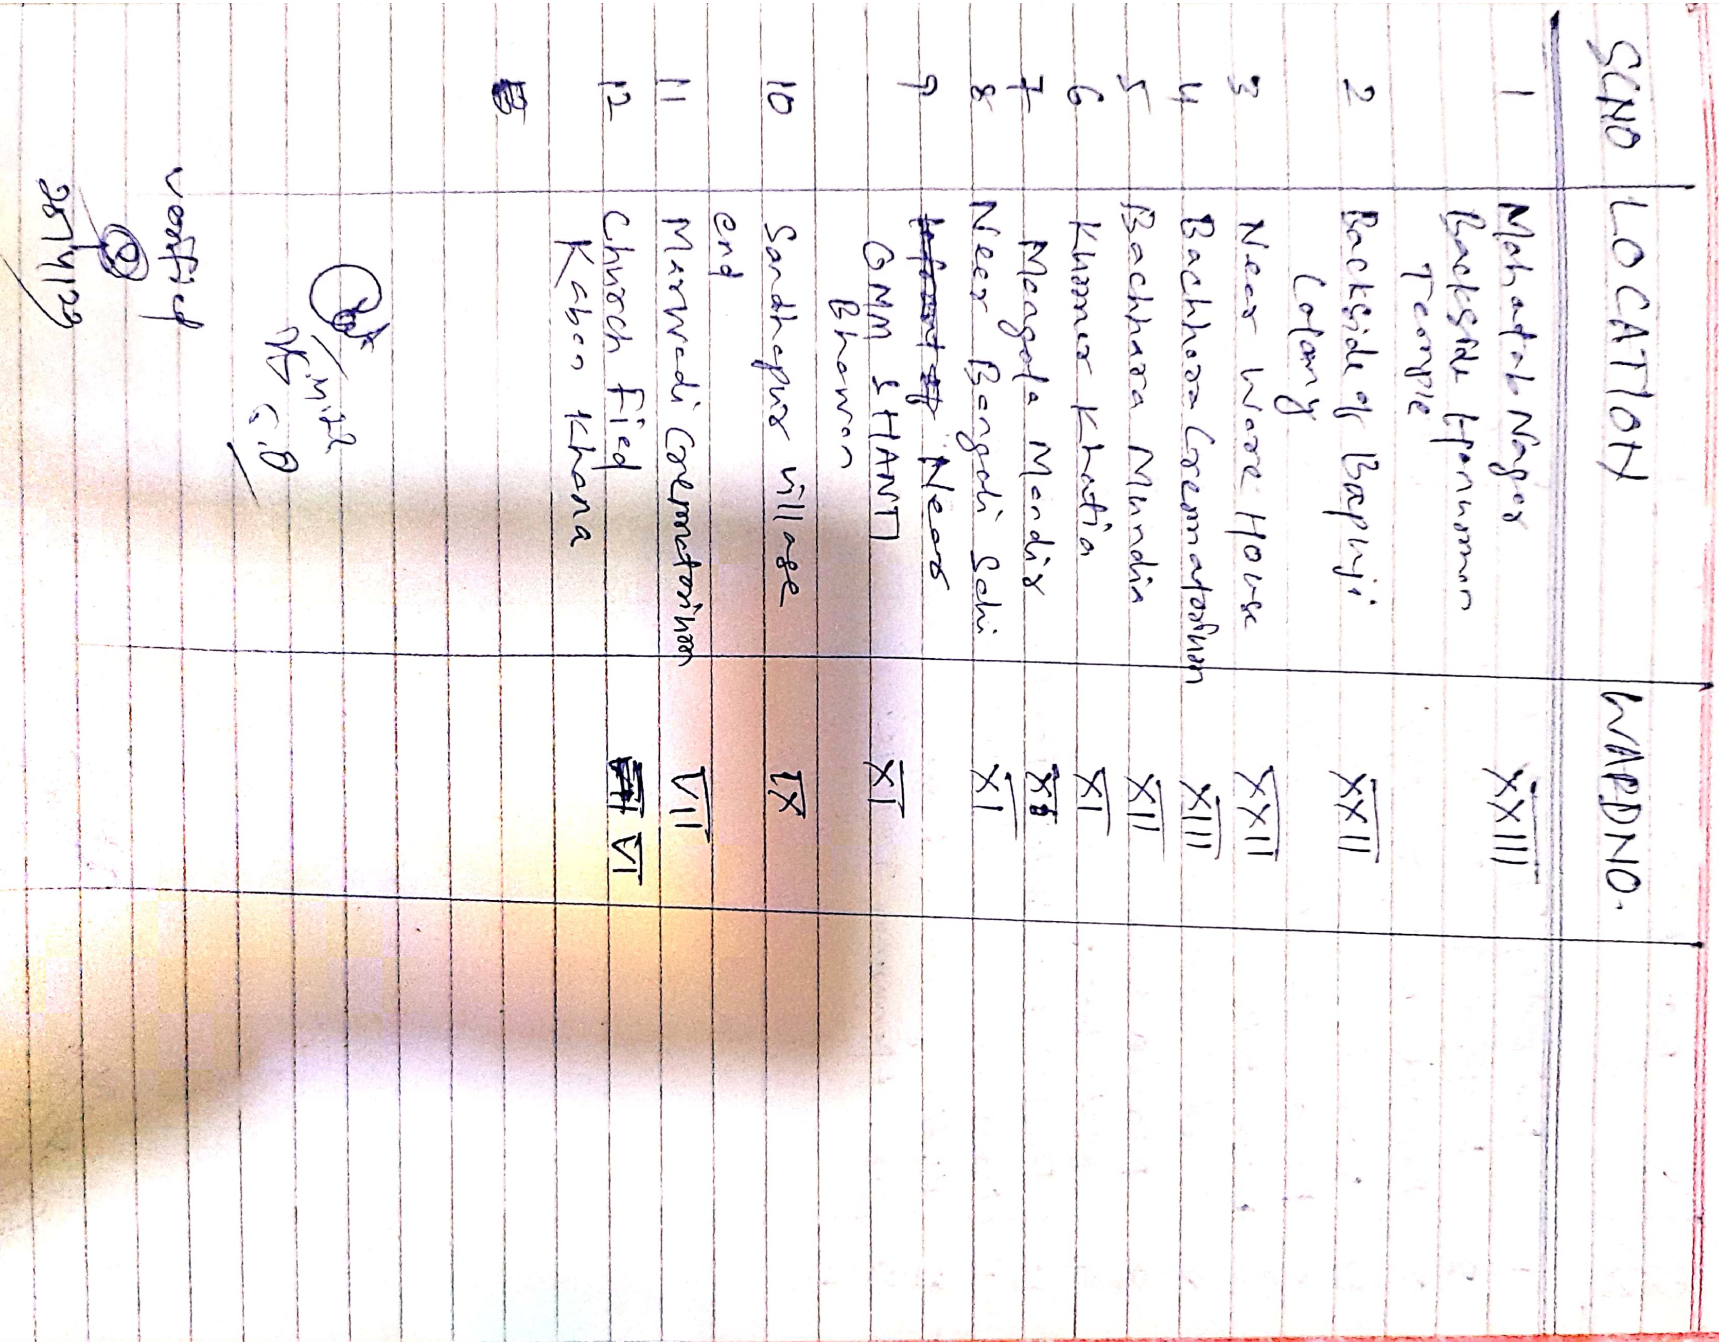 SLNO LOCATION WARDNO.
1 Mahatab Nagar XXIII
Backside Hanuman
Temple
2 Backside of Bapuji XXII
Colony
3 Near Ware House XXII
4 Bachhara Crematorium XIII
5 Bachhara Mundia XII
6 Khumar Khatia XI
7 Mangala Mandir XI
8 Near Bangali Sahi XI
9 Near
OMM SHANTI XI
Bhawan
10 Sandhapur village IX
end
11 Marwadi Crematorium VII
12 Church Fied VI
Kaben Khana
verified